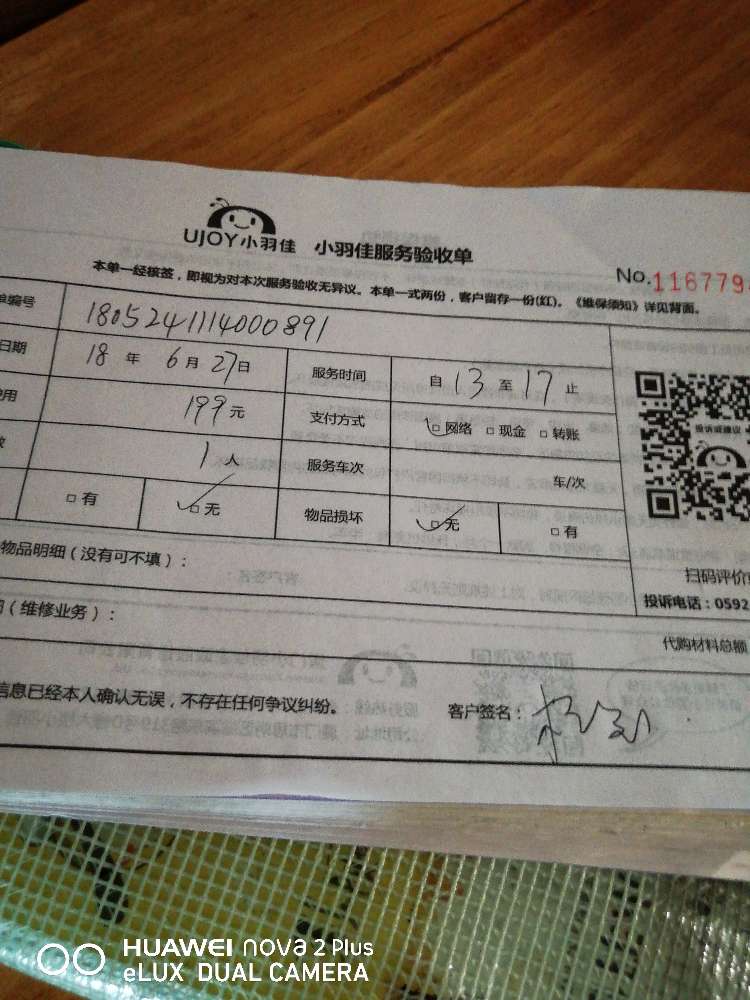 UJOY小羽佳 小羽佳服务验收单
No.116779
本单一经核签，即视为对本次服务验收无异议。本单一式两份，客户留存一份(红)。《维保须知》详见背面。
单编号 1805241114000891
日期 18 年 6 月 27 日 服务时间 自 13 至 17 止
用 199 元 支付方式 □ 网络 □ 现金 □ 转账
1 人 服务车次 车/次
□ 有 □ 无 物品损坏 □ 无 □ 有
投诉或建议
物品明细（没有可不填）：
扫码评价
投诉电话：0592
（维修业务）：
代购材料总额
信息已经本人确认无误，不存在任何争议纠纷。 客户签名：
HUAWEI nova 2 Plus
eLUX DUAL CAMERA